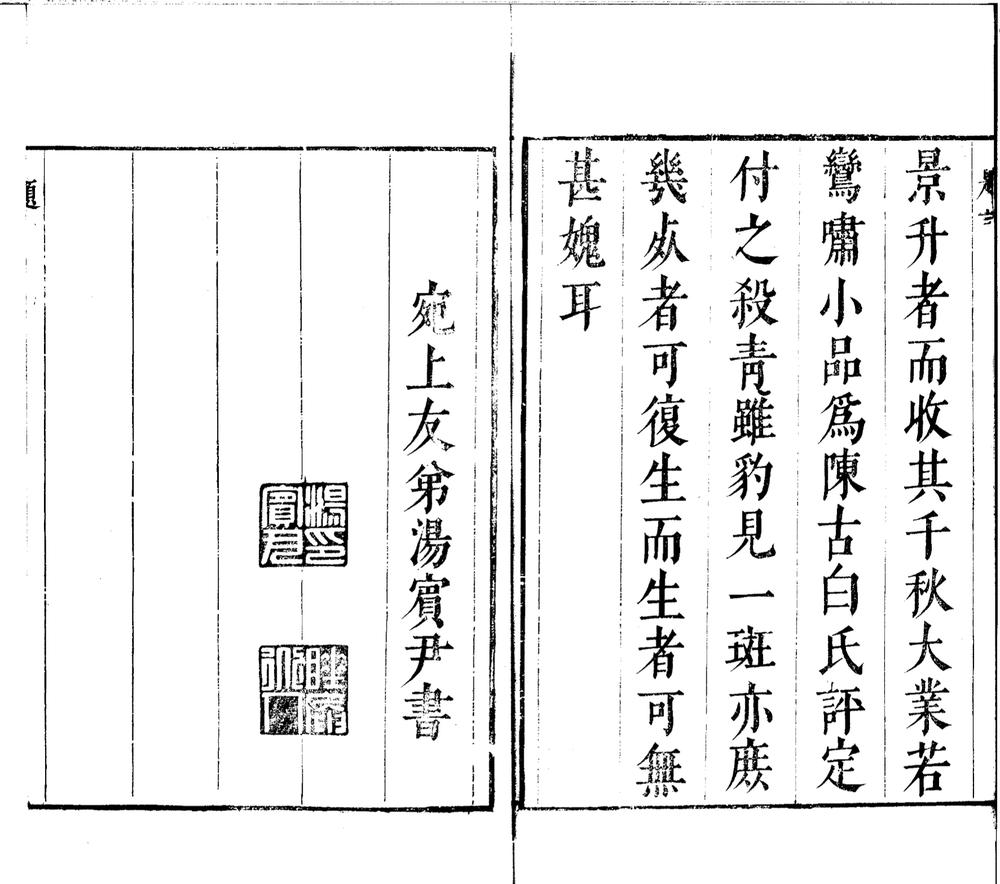 景升者而收其千秋大業若
鸞嘯小品爲陳古白氏評定
付之殺青雖豹見一斑亦庶
㡬𣦸者可復生而生者可無
甚媿耳
宛上友弟湯賓尹書
湯印賓尹
題